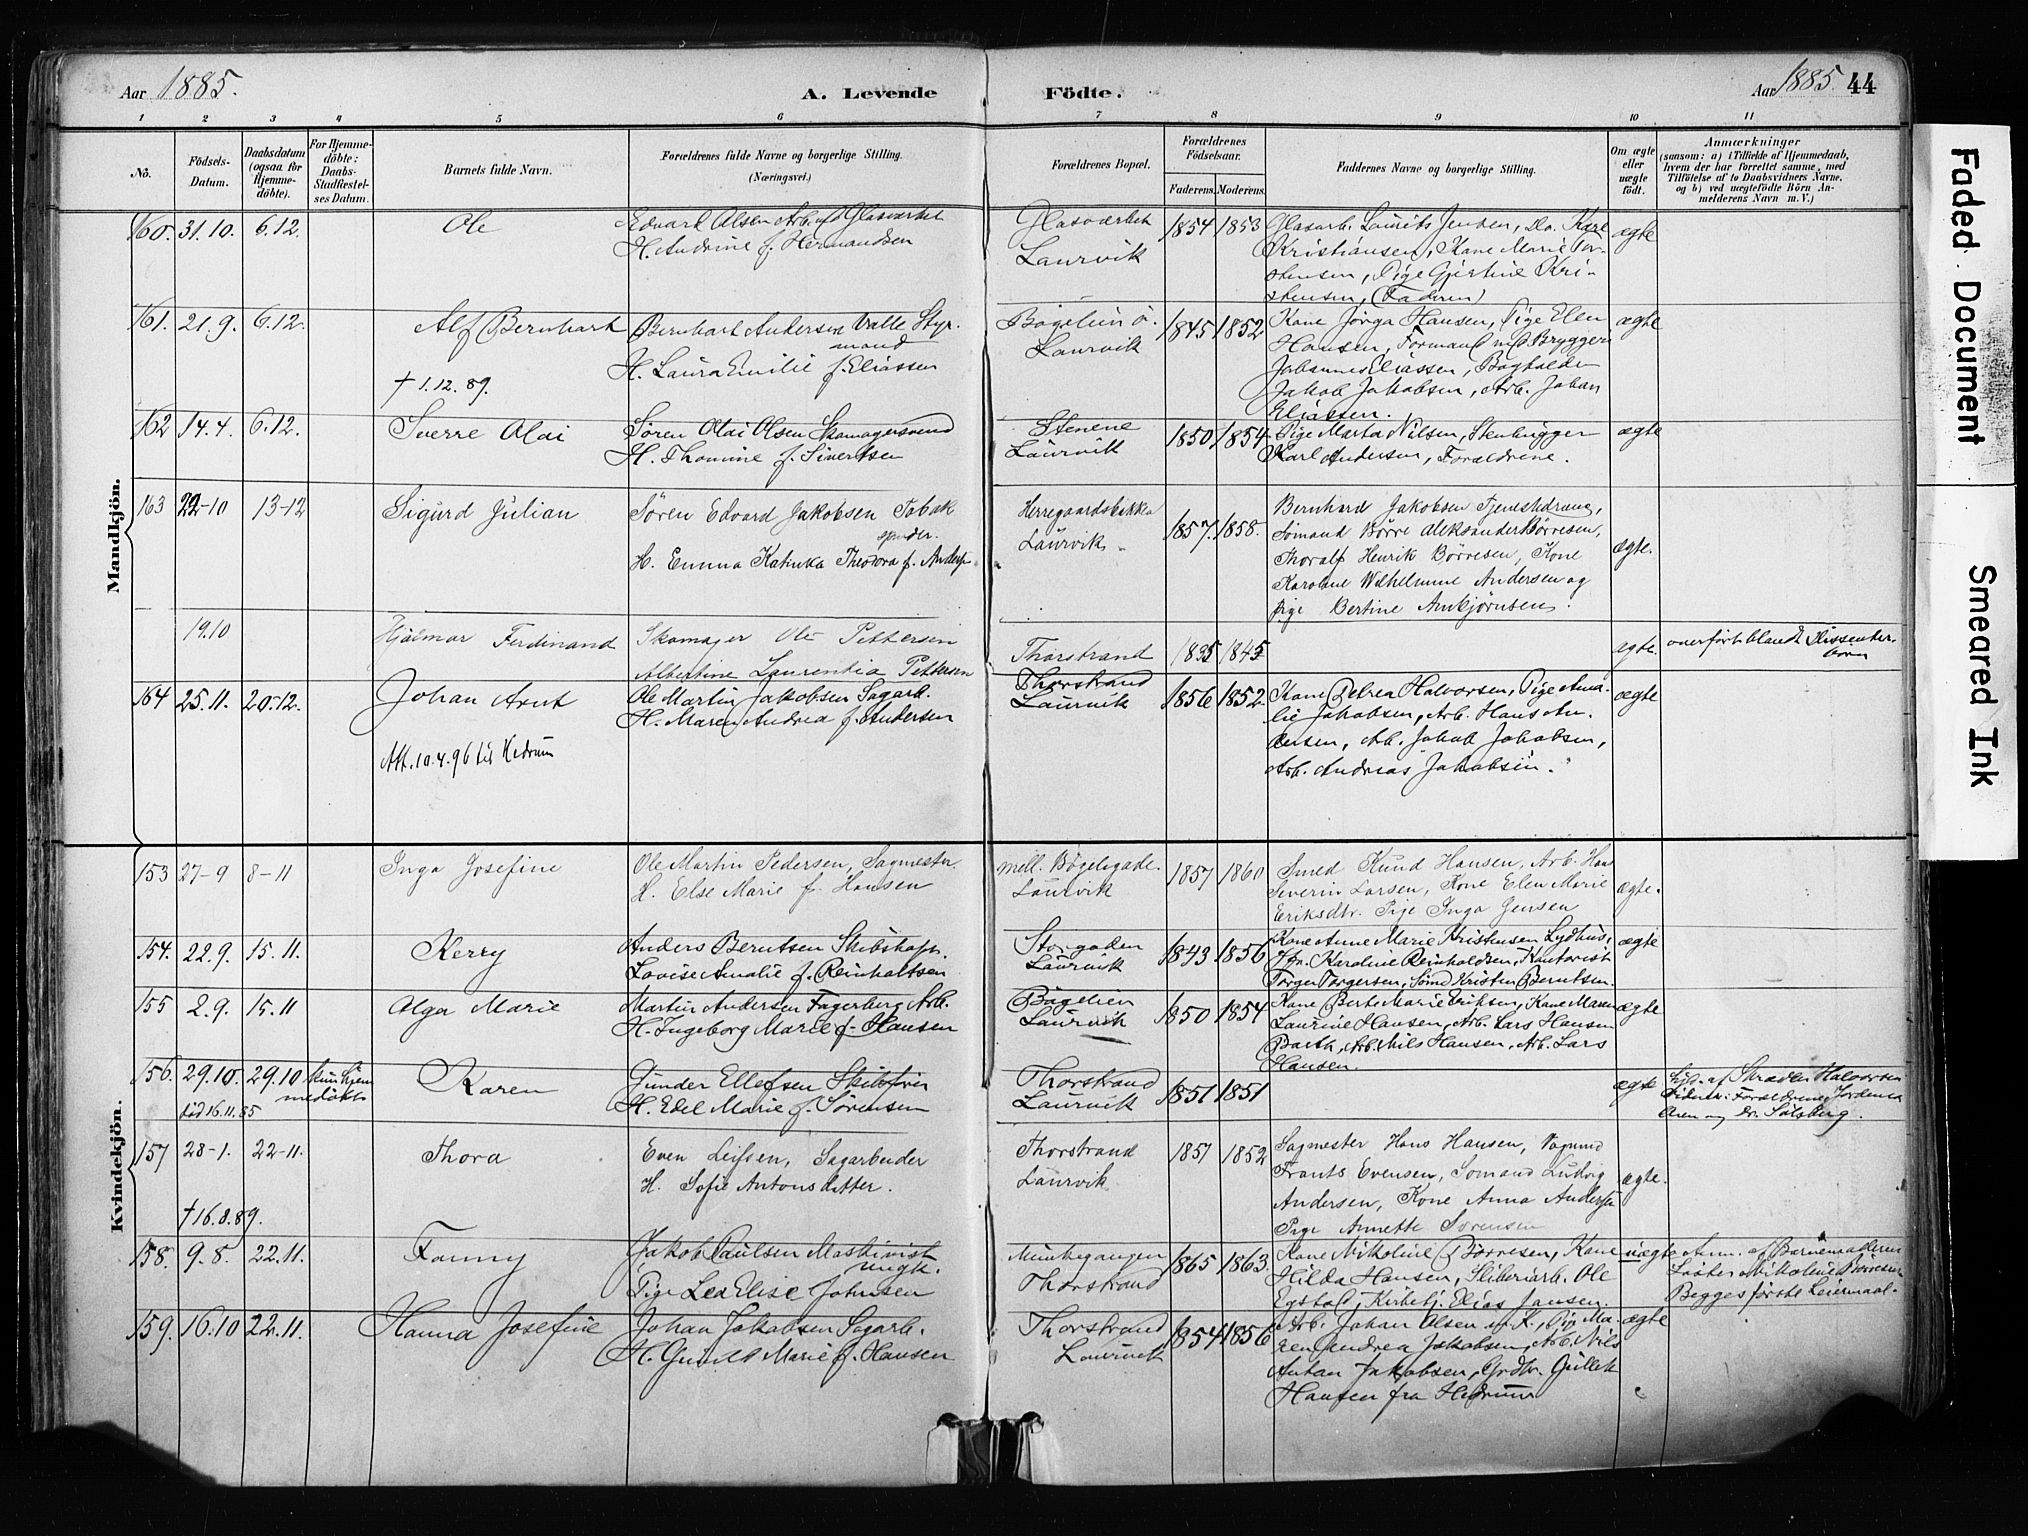 Aar 1885.
A. Levende Födte.
Aar 1885 44
1 2 3 4 5 6 7 8 9 10 11
No.
Födsels-Datum.
Daabsdatum (ogsaa for Hjemme-döbte).
For Hjemme-döbte: Daabs-Stadfæstel-ses Datum.
Barnets fulde Navn.
Forældrenes fulde Navne og borgerlige Stilling. (Næringsvei.)
Forældrenes Bopæl.
Forældrenes Födselsaar.
Faderens. Moderens.
Faddernes Navne og borgerlige Stilling.
Om ægte eller uægte födt.
Anmærkninger
(sansom: a) i Tilfælde af Hjemmedaab, hvem der har forrettet samme, med Tilföielse af to Daabsvidners Navne, og b) ved uægtefödte Börn An-melderens Navn m.V.)
Mandkjön.
160. 31.10. 6.12. Ole
Edvard Olsen Arb. v/d Glasværket
H. Andrine f. Hermandsen
Glasværket
Laurvik
1854 1853
Glasarb. Laurits Jensen, Do. Karl
Kristiansen, Kone Marie Tor-
stensen, Pige Gjertine Kri-
stensen, (Faderen)
ægte
161. 21.9. 6.12. Alf Bernhart
† 1.12.89.
Bernhart Andersen Valle Styr-
mand
H. Laura Emilie f. Eliassen
Bøgelien ø.
Laurvik
1845 1852
Kone Jørga Hansen, Pige Elen
Hansen, Formand ved Bryggeri
Johannes Eliassen, Bogholder
Jakob Jakobsen, Arb. Johan
Eliassen.
ægte
162 14.4. 6.12. Sverre Olai
Søren Olai Olsen Skomagersvend
H. Thomine f. Sivertsen
Stenene
Laurvik
1850 1854
Pige Marta Nilsen, Stenhugger
Karl Andersen, Forældrene.
ægte
163 22-10 13-12 Sigurd Julian
Søren Edvard Jakobsen Tobak
spinder.
H. Emma Katinka Theodora f. Anders.
Herregaardsbakken
Laurvik.
1857. 1858.
Bernhard Jakobsen Tjenestedreng,
Sømand Børre Aleksander Børresen,
Thoralf Henrik Børresen, Kone
Karoline Wilhelmine Andersen og
Pige Bertine Arnkjørnsen.
ægte.
19.10 Hjalmar Ferdinand
Skomager Ole Pettersen
Albertine Laurentia Pettersen
Thorstrand
1835 1845
ægte.
overført blandt Dissenter-
børn
164 25.11. 20.12. Johan Arnt
Att. 10.4.96 til Hedrum
Ole Martin Jakobsen Sagarb.
H. Maren Andrea f. Andersen
Thorstrand
Laurvik
1856 1852
Kone Petrea Halvorsen, Pige Ama-
lie Jakobsen, Arb. Hans An-
dersen, Arb. Jakob Jakobsen,
Arb. Andreas Jakobsen.
ægte
Kvindekjön.
153 27-9 8-11 Inga Josefine
Ole Martin Pedersen, Sagmester.
H. Else Marie f. Hansen
Mell. Bøgelegade.
Laurvik
1857 1860
Smed Knud Hansen, Arb. Hans
Severin Larsen, Kone Elen Marie
Eriksdtr. Pige Inga Jensen
ægte.
154. 22.9. 15.11. Kerry
Anders Berntsen Skibskapt.
Lovise Amalie f. Reinholtsen
Storgaden
Laurvik
1843 1856
Kone Anne Marie Kristensen Lydhus,
Jfr. Karoline Reinholdsen, Kontorist
Torger Torgersen, Sømd Kristen Berntsen.
ægte
155 2.9. 15.11 Olga Marie
Martin Andersen Fagerberg Arb.
H. Ingeborg Marie f. Hansen
Bøgelien
Laurvik
1850 1854
Kone Berte Marie Eriksen, Kone Maren
Laurine Hansen, Arb. Lars Hansen
Barth, Arb. Nils Hansen, Arb. Lars
Hansen.
ægte
156. 29.10. 29.10 kun hjem
medøbt
død 16.11.85
Karen
Gunder Ellefsen Skibsfører
H. Edel Marie f. Sørensen
Thorstrand
Laurvik
1851 1851
ægte
Hjd. af Halvorsen
Vidner: Forældrene, Jordemo
deren og Dr. Salsberg.
157 28-1. 22-11. Thora
† 16.8.89.
Even Leifsen, Sagarbeider
H. Sofie Antonsdatter.
Thorstrand
Laurvik
1857 1852
Sagmester Hans Hansen, Vognmd
Frants Evensen, Sømand Ludvig
Andersen, Kone Anna Andersen
Pige Annette Sørensen
ægte.
158. 9.8. 22.11. Fanny
Jakob Paulsen Maskinist
ungk.
Pige Lea Elise Johnsen
Munkegangen
Thorstrand
1865 1863
Kone Nikoline Børresen, Kone
Hilda Hansen, Sliberiarb. Ole
Egstad, Kirketj. Elias Jansen
uægte
Anm. af Barnemoderen
Søster Nikoline Børresen
Begges første Leiermaal.
159. 16.10 22.11. Hanna Josefine
Johan Jakobsen Sagarb.
H. Gunild Marie f. Hansen
Thorstrand
Laurvik
1854 1856
Arb. Johan Olsen m. K., Pige Ma-
ren Andrea Jakobsen, Arb. Nils
Anton Jakobsen, Grdbr. Gullik
Hansen fra Hedrum
ægte
Faded Document
Smeared Ink